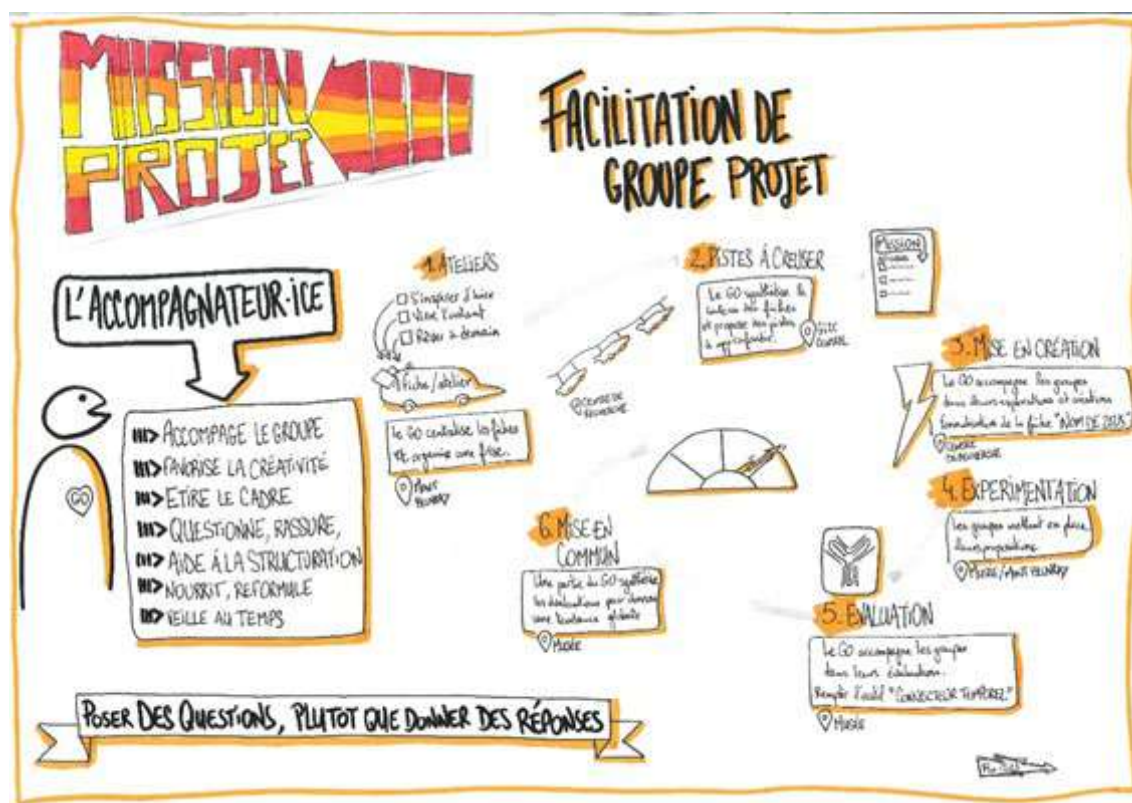 MISSION
PROJET
FACILITATION DE
GROUPE PROJET
L'ACCOMPAGNATEUR·ICE
GO
ACCOMPAGE LE GROUPE
FAVORISE LA CRÉATIVITÉ
ETIRE LE CADRE
QUESTIONNE, RASSURE,
AIDE À LA STRUCTURATION
NOURRIT, REFORMULE
VEILLE AU TEMPS
1. ATELIERS
S'inspirer d'hier
Vivre l'instant
Rêver à demain
fiche/atelier
Le GO centralise les fiches
et organise une frise.
2. PISTES À CREUSER
Le GO synthétise le
contenu des fiches
et propose des pistes
à approfondir.
CENTRE DE
RECHERCHE
MISSION
3. MISE EN CRÉATION
Le GO accompagne les groupes
dans leurs explorations et créations
formalisation de la fiche "NOM DE ZEUS"
CENTRE
4. EXPERIMENTATION
Les groupes mettent en place
leurs propositions
5. EVALUATION
Le GO accompagne les groupes
dans leurs évaluation.
Remplir l'outil "CONVECTEUR TEMPOREL"
MUSÉE
6. MISE EN
COMMUN
Une partie du GO synthétise
les évaluations pour donner
une tendance globale
MUSÉE
POSER DES QUESTIONS, PLUTOT QUE DONNER DES RÉPONSES